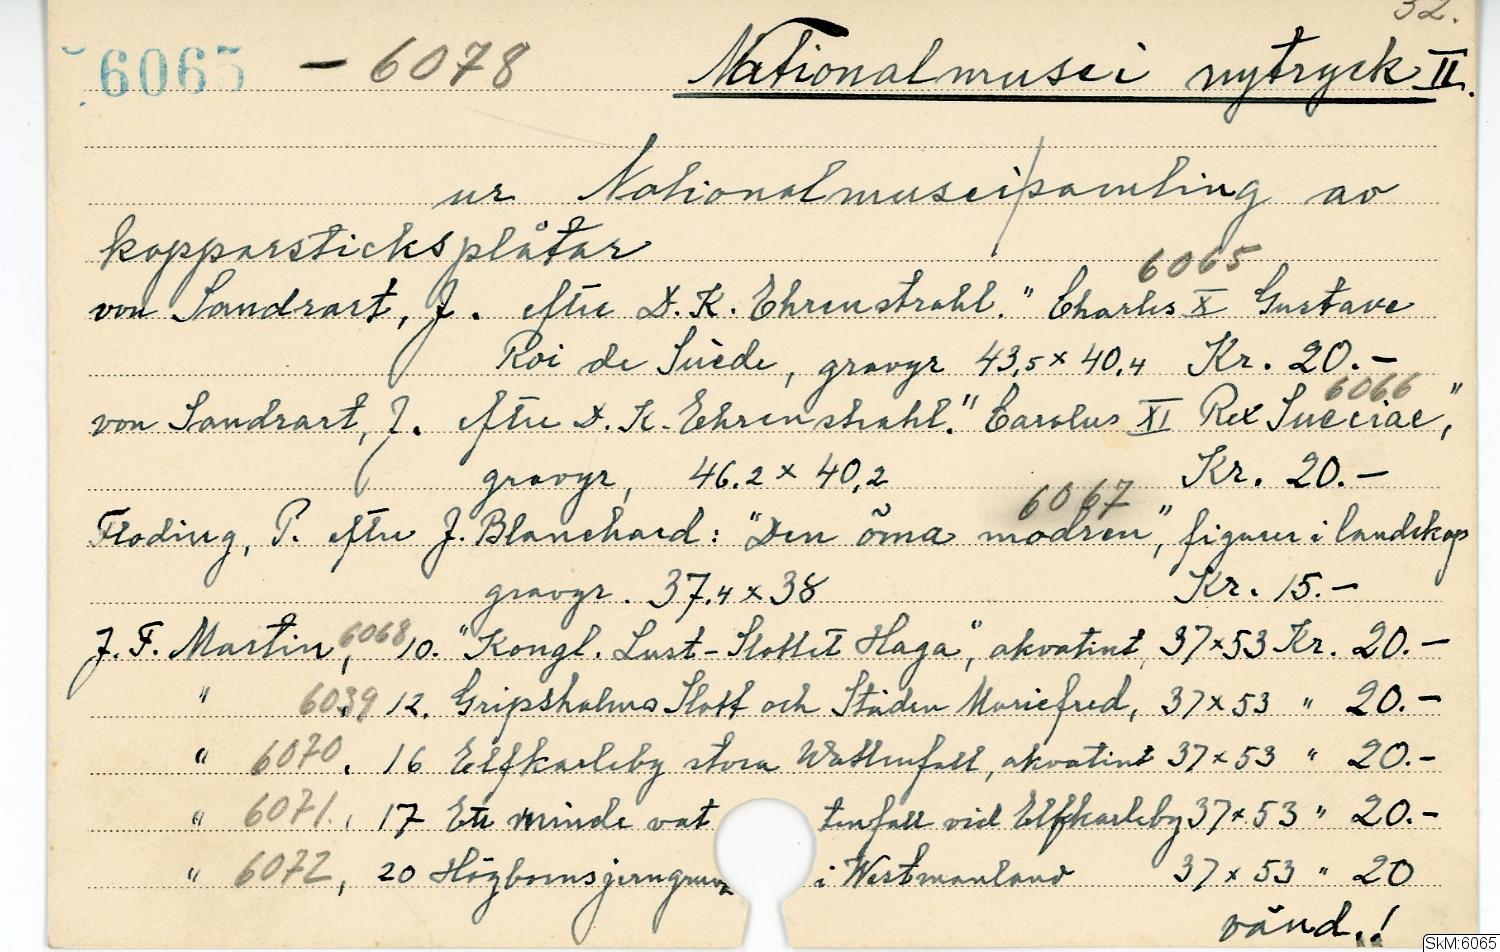 32.
6065 – 6078 Nationalmusei nytryck II.
ur Nationalmusei/samling av
kopparsticksplåtar
6065
von Sandrart, J. efter D. K. Ehrenstrahl. "Charles X Gustave
Roi de Suède, gravyr 43,5 x 40,4 Kr. 20.–
6066
von Sandrart, J. efter D. K. Ehrenstrahl. "Carolus XI Rex Sueciae",
gravyr, 46.2 x 40,2 Kr. 20.–
6067
Floding, P. efter J. Blanchard: "Den öma modren", figurer i landskap
gravyr. 37,4 x 38 Kr. 15.–
J. F. Martin, 6068 10. "Kongl. Lust-Slottet Haga", akvatint, 37x53 Kr. 20.–
" 6039 12. Gripsholms Slott och Staden Mariefred, 37x53 " 20.–
" 6070. 16 Elfkarleby stora Wattenfall, akvatint 37x53 " 20.–
" 6071. 17 Ett minde vattenfall vid Elfkarleby 37x53 " 20.–
" 6072, 20 Högbornsjerngruva i Westmanland 37x53 " 20
vänd.!
SkM:6065